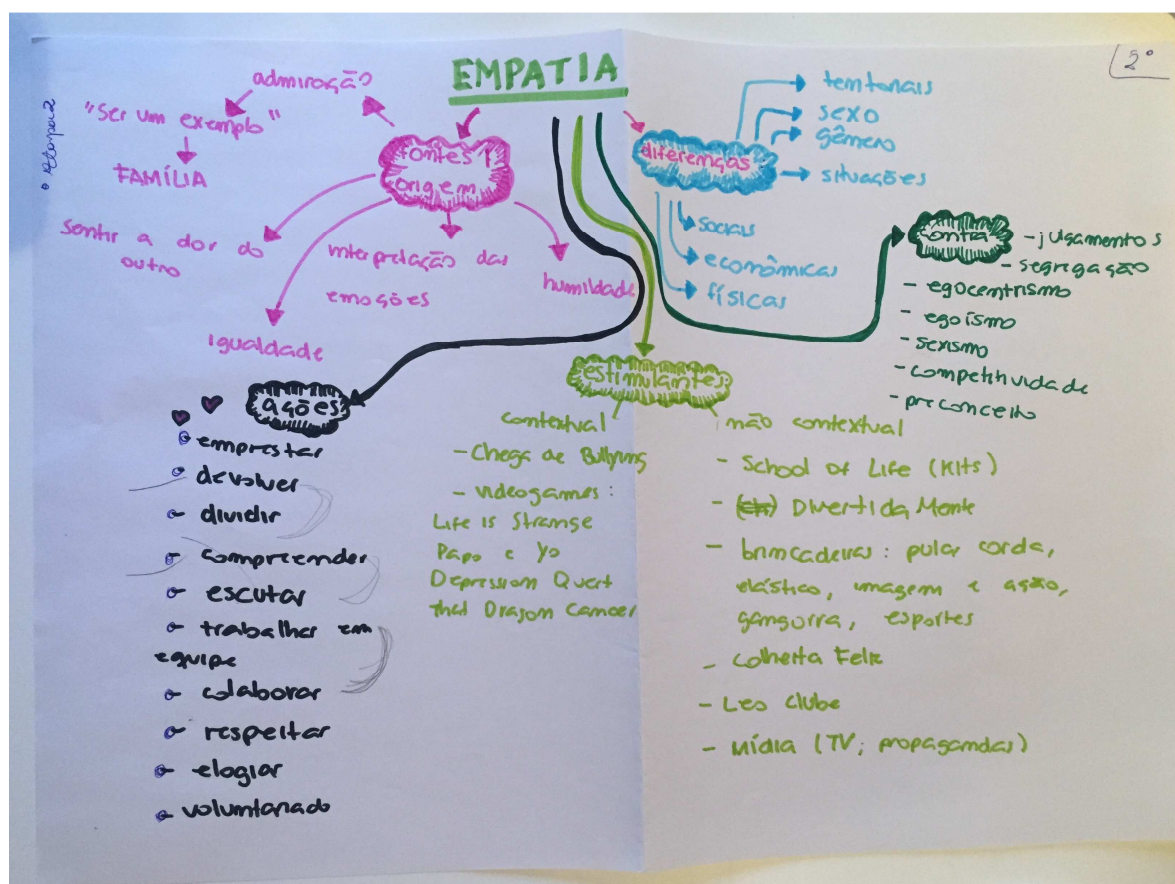 EMPATIA
2°
admiração
"Ser um exemplo"
FAMÍLIA
fontes /
origem
sentir a dor do
outro
interpretação das
emoções
humildade
igualdade
diferenças
territoriais
sexo
gênero
situações
sociais
econômicas
físicas
contra
- julgamentos
- segregação
- egocentrismo
- egoísmo
- sexismo
- competitividade
- preconceito
ações
emprestar
devolver
dividir
compreender
escutar
trabalhar em
equipe
colaborar
respeitar
elogiar
voluntariado
estimulantes
contextual
- Chega de Bullying
- videogames:
Life is Strange
Papo e Yo
Depression Quert
that Dragon Cancer
não contextual
- School of Life (Kits)
- Divertida Mente
- brincadeiras: pular corda,
elástico, imagem e ação,
gangorra, esportes
- Colheita Feliz
- Leo Clube
- Mídia (TV; propagandas)